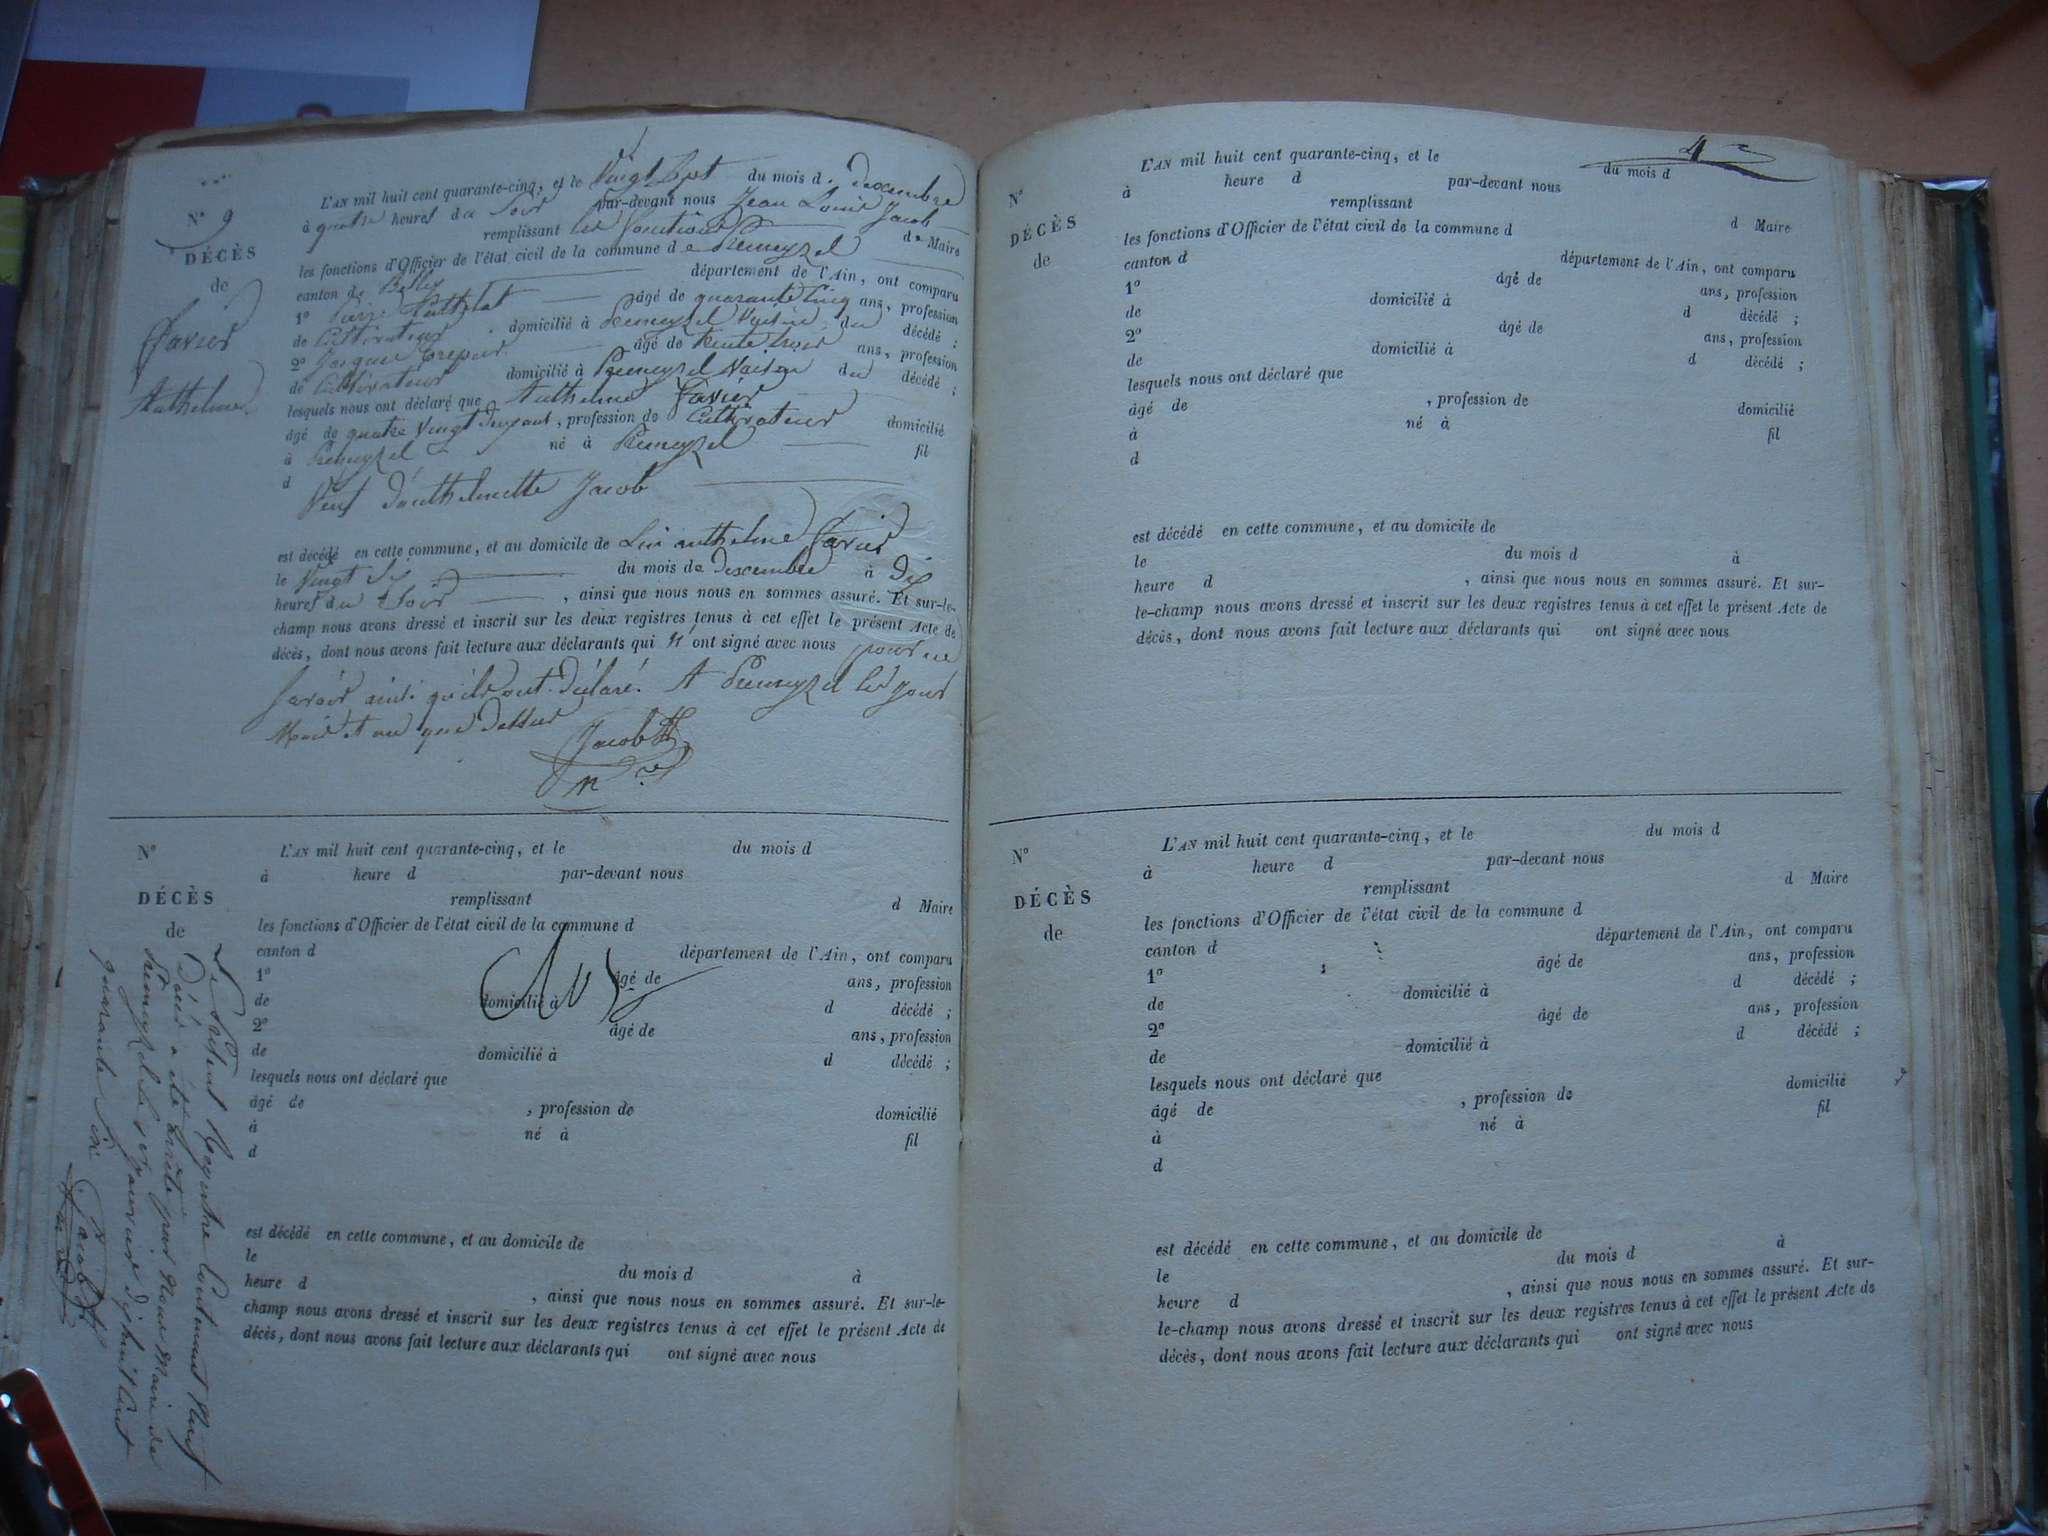 N° 9
DÉCÈS
de
Favier
Anthelme
L'AN mil huit cent quarante-cinq, et le Vingt Sept du mois d. Dexcembre
à quatre heures du Soir par-devant nous Jean Louis Jacob
remplissant les fonctions de Maire
les fonctions d'Officier de l'état civil de la commune de Premeyzel
canton de Belley département de l'Ain, ont comparu
1° âgé de quarante Cinq ans, profession
de Cultivateur domicilié à Premeyzel Voisin du décédé ;
2° Jacques âgé de trente trois ans, profession
de Cultivateur domicilié à Premeyzel Voisin du décédé ;
lesquels nous ont déclaré que Anthelme Favier
âgé de quatre Vingt deux ans, profession de Cultivateur domicilié
à Premeyzel né à Premeyzel fil
d
Veuf d'anthelmette Jacob
est décédé en cette commune, et au domicile de Lui anthelme Favier
le Vingt Six du mois de Dexcembre à Dix
heures du Soir , ainsi que nous nous en sommes assuré. Et sur-le-
champ nous avons dressé et inscrit sur les deux registres tenus à cet effet le présent Acte de
décès, dont nous avons fait lecture aux déclarants qui n'ont signé avec nous pour ne
Savoir ainsi qu'ils ont Déclaré. A Premeyzel les jour
Mois et an que Dessus
Jacob
m re
N°
DÉCÈS
de
L'AN mil huit cent quarante-cinq, et le du mois d
à heure d par-devant nous
remplissant d Maire
les fonctions d'Officier de l'état civil de la commune d
canton d département de l'Ain, ont comparu
1° âgé de ans, profession
de domicilié à d décédé ;
2° âgé de ans, profession
de domicilié à d décédé ;
lesquels nous ont déclaré que
âgé de , profession de domicilié
à né à fil
d
est décédé en cette commune, et au domicile de
le du mois d à
heure d , ainsi que nous nous en sommes assuré. Et sur-le-
champ nous avons dressé et inscrit sur les deux registres tenus à cet effet le présent Acte de
décès, dont nous avons fait lecture aux déclarants qui ont signé avec nous
Le Présent Registre Contenant Neuf
Décès a été arrêté par Nous Maire de
Premeyzel le 1er janvier Dix huit Cent
quarante Six
Jacob
4
N°
DÉCÈS
de
L'AN mil huit cent quarante-cinq, et le du mois d
à heure d par-devant nous
remplissant d Maire
les fonctions d'Officier de l'état civil de la commune d
canton d département de l'Ain, ont comparu
1° âgé de ans, profession
de domicilié à d décédé ;
2° âgé de ans, profession
de domicilié à d décédé ;
lesquels nous ont déclaré que
âgé de , profession de domicilié
à né à fil
d
est décédé en cette commune, et au domicile de
le du mois d à
heure d , ainsi que nous nous en sommes assuré. Et sur-
le-champ nous avons dressé et inscrit sur les deux registres tenus à cet effet le présent Acte de
décès, dont nous avons fait lecture aux déclarants qui ont signé avec nous
N°
DÉCÈS
de
L'AN mil huit cent quarante-cinq, et le du mois d
à heure d par-devant nous
remplissant d Maire
les fonctions d'Officier de l'état civil de la commune d
canton d département de l'Ain, ont comparu
1° âgé de ans, profession
de domicilié à d décédé ;
2° âgé de ans, profession
de domicilié à d décédé ;
lesquels nous ont déclaré que
âgé de , profession de domicilié
à né à fil
d
est décédé en cette commune, et au domicile de
le du mois d à
heure d , ainsi que nous nous en sommes assuré. Et sur-
le-champ nous avons dressé et inscrit sur les deux registres tenus à cet effet le présent Acte de
décès, dont nous avons fait lecture aux déclarants qui ont signé avec nous